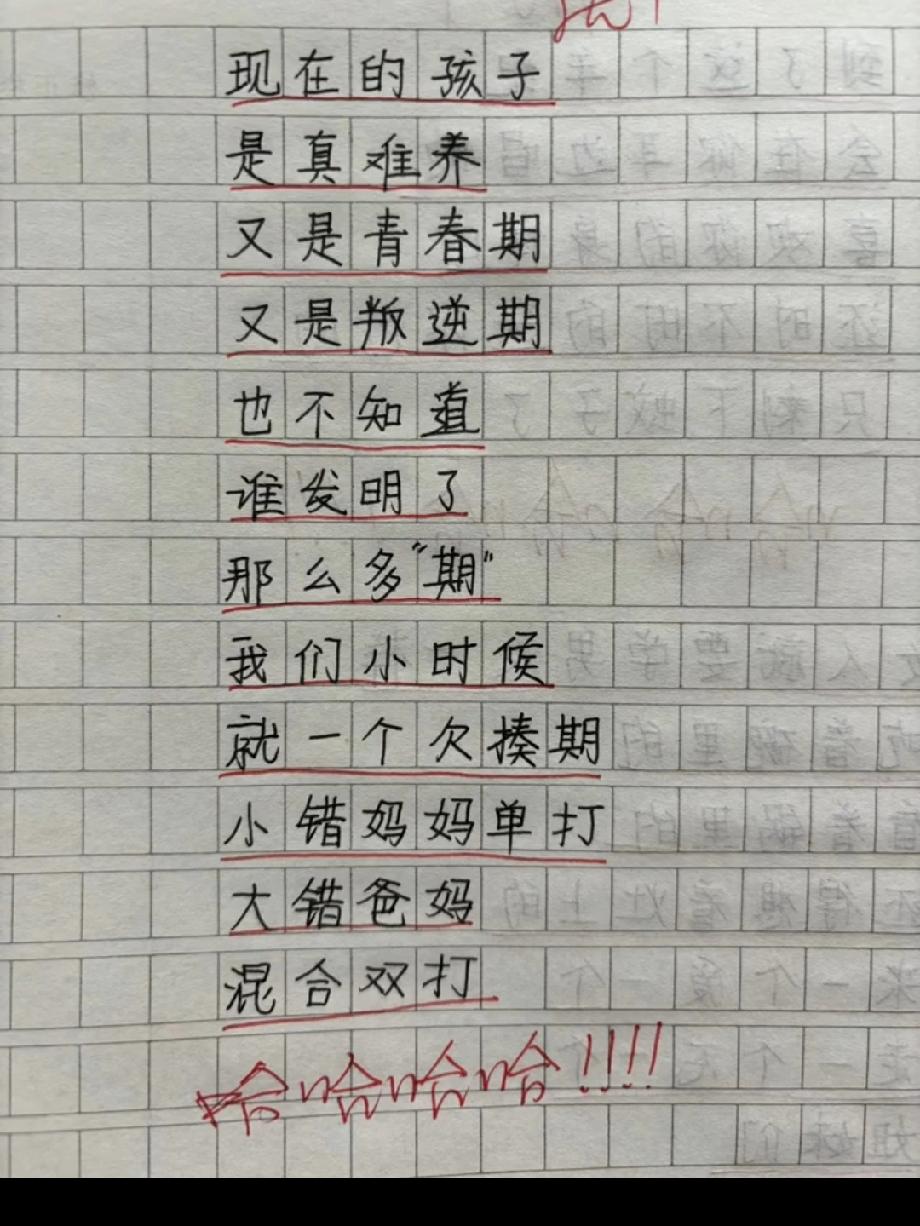 现在的孩子
是真难养
又是青春期
又是叛逆期
也不知道
谁发明了
那么多“期”
我们小时候
就一个欠揍期
小错妈妈单打
大错爸妈
混合双打
哈哈哈哈!!!!